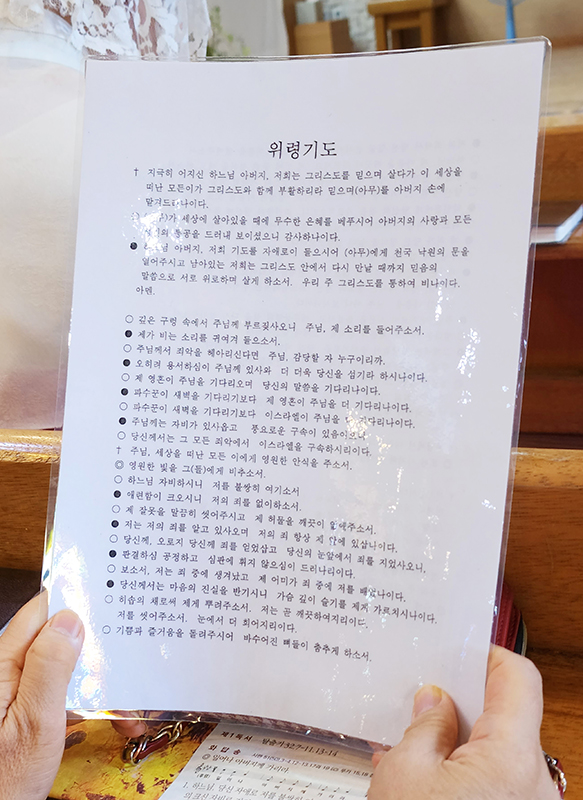 위령기도
† 지극히 어지신 하느님 아버지, 저희는 그리스도를 믿으며 살다가 이 세상을
떠난 모든이가 그리스도와 함께 부활하리라 믿으며(아무)를 아버지 손에
맡겨드리나이다.
○ 가 세상에 살아있을 때에 무수한 은혜를 베푸시어 아버지의 사랑과 모든
통공을 드러내 보이셨으니 감사하나이다.
● 하느님 아버지, 저희 기도를 자애로이 들으시어 (아무)에게 천국 낙원의 문을
열어주시고 남아있는 저희는 그리스도 안에서 다시 만날 때까지 믿음의
말씀으로 서로 위로하며 살게 하소서. 우리 주 그리스도를 통하여 비나이다.
아멘.
○ 깊은 구렁 속에서 주님께 부르짖사오니 주님, 제 소리를 들어주소서.
● 제가 비는 소리를 귀여겨 들으소서.
○ 주님께서 죄악을 헤아리신다면 주님, 감당할 자 누구이리까.
● 오히려 용서하심이 주님께 있사와 더 더욱 당신을 섬기라 하시나이다.
○ 제 영혼이 주님을 기다리오며 당신의 말씀을 기다리나이다.
● 파수꾼이 새벽을 기다리기보다 제 영혼이 주님을 더 기다리나이다.
○ 파수꾼이 새벽을 기다리기보다 이스라엘이 주님을 더 기다리나이다.
● 주님께는 자비가 있사옵고 풍요로운 구속이 있음이오니
○ 당신께서는 그 모든 죄악에서 이스라엘을 구속하시리이다.
† 주님, 세상을 떠난 모든 이에게 영원한 안식을 주소서.
◎ 영원한 빛을 그(들)에게 비추소서.
○ 하느님 자비하시니 저를 불쌍히 여기소서
● 애련함이 크오시니 저의 죄를 없이하소서.
○ 제 잘못을 말끔히 씻어주시고 제 허물을 깨끗이 없애주소서.
● 저는 저의 죄를 알고 있사오며 저의 죄 항상 제 앞에 있삽나이다.
○ 당신께, 오로지 당신께 죄를 얻었삽고 당신의 눈앞에서 죄를 지었사오니,
● 판결하심 공정하고 심판에 휘지 않으심이 드러나리이다.
○ 보소서, 저는 죄 중에 생겨났고 제 어미가 죄 중에 저를 배었나이다.
● 당신께서는 마음의 진실을 반기시니 가슴 깊이 슬기를 제게 가르치시나이다.
○ 히솝의 채로써 제게 뿌려주소서. 저는 곧 깨끗하여지리이다.
저를 씻어주소서. 눈에서 더 희어지리이다.
○ 기쁨과 즐거움을 돌려주시어 바수어진 뼈들이 춤추게 하소서.
제1독서 탈출기32,7-11.13-14
화답송
◎ 일어나 아버지께 가리라
1. 하느님, 당신 자애로 저를